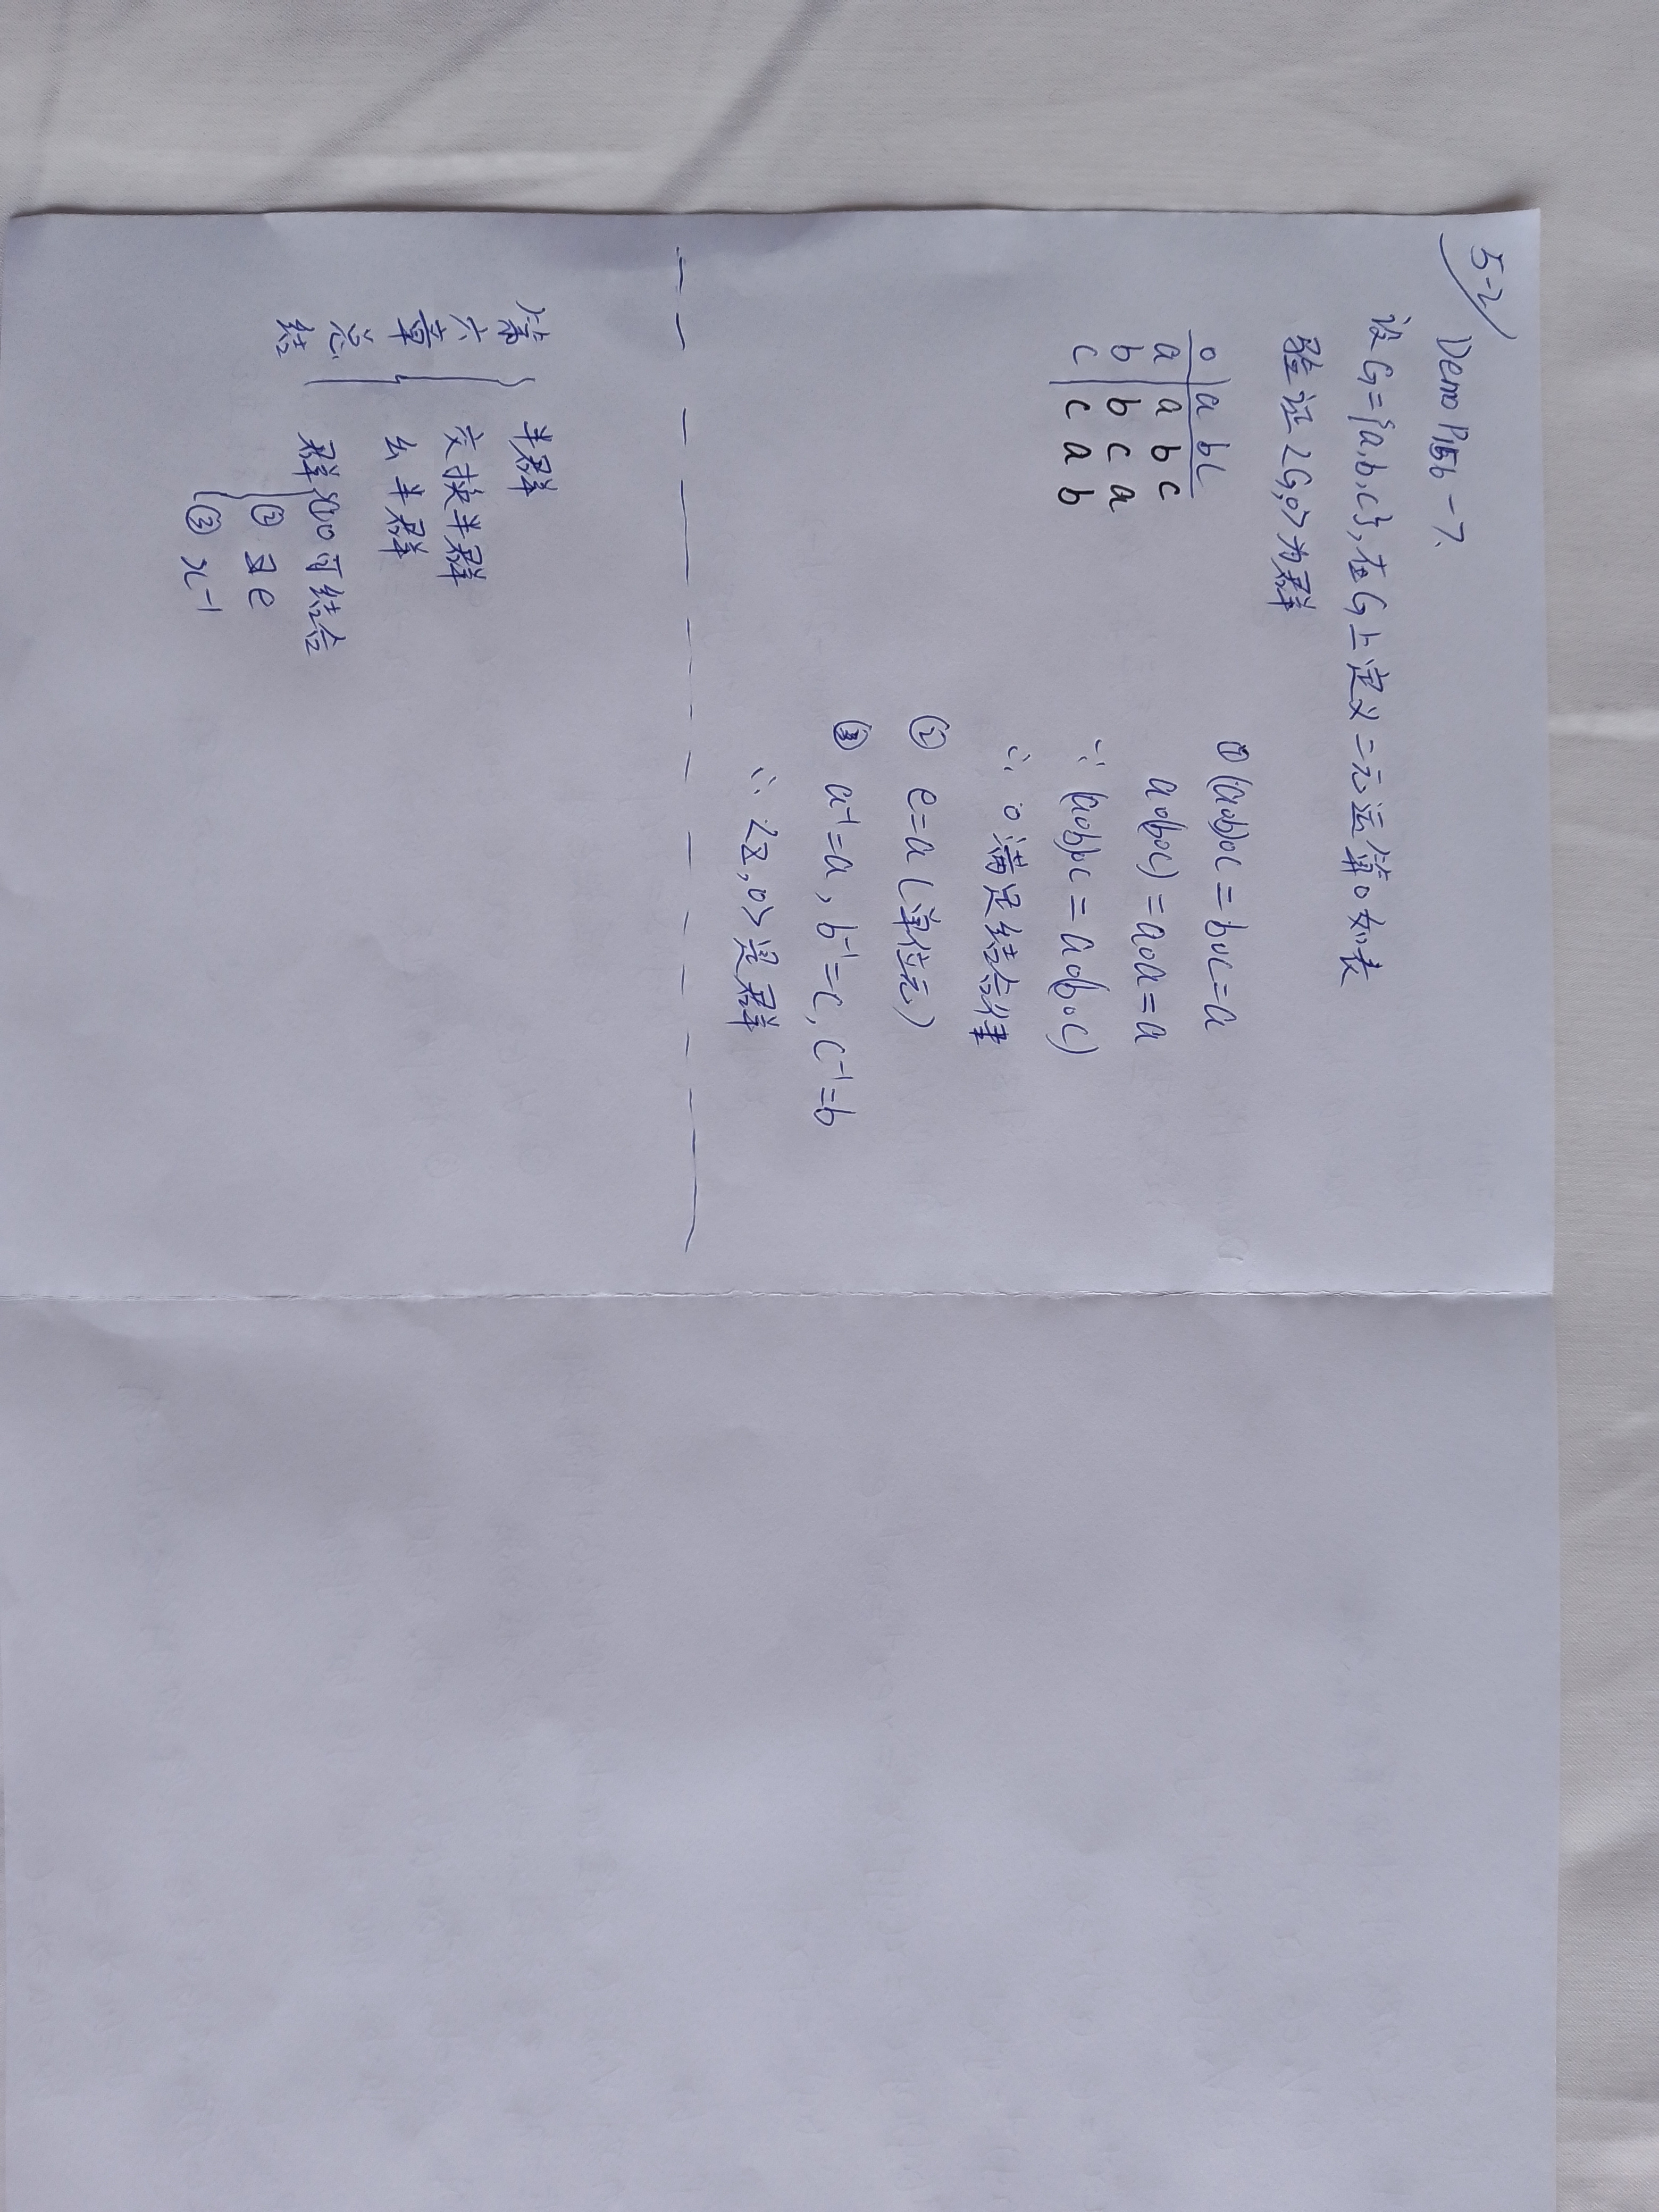 5-2
Demo P156-7.
设G={a,b,c},在G上定义二元运算o如表
验证<G,o>为群
o a b c
a a b c
b b c a
c c a b
① (aob)oc = boc = a
ao(boc) = aoa = a
∵ (aob)oc = ao(boc)
∴ o满足结合律
② e=a (单位元)
③ a⁻¹=a, b⁻¹=c, c⁻¹=b
∴ <Z,o>是群
第六章总结
半群
交换半群
幺半群
群 ①o可结合
② ∃e
③ x⁻¹